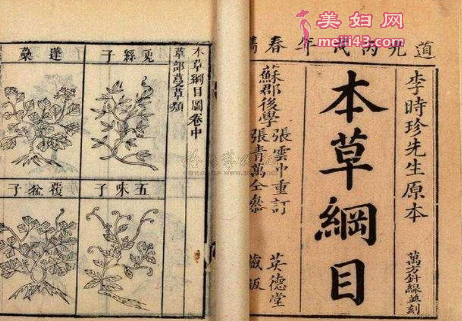 美妇网
道光丙戌年春鐫
李時珍先生原本
萬方針線並刻
本草綱目
蘇郡後學
張雲中重訂
張青萬仝參
英德堂
藏版
本草綱目圖卷中
草部蔓草類
兔絲子
蓬蘽
五味子
覆盆子